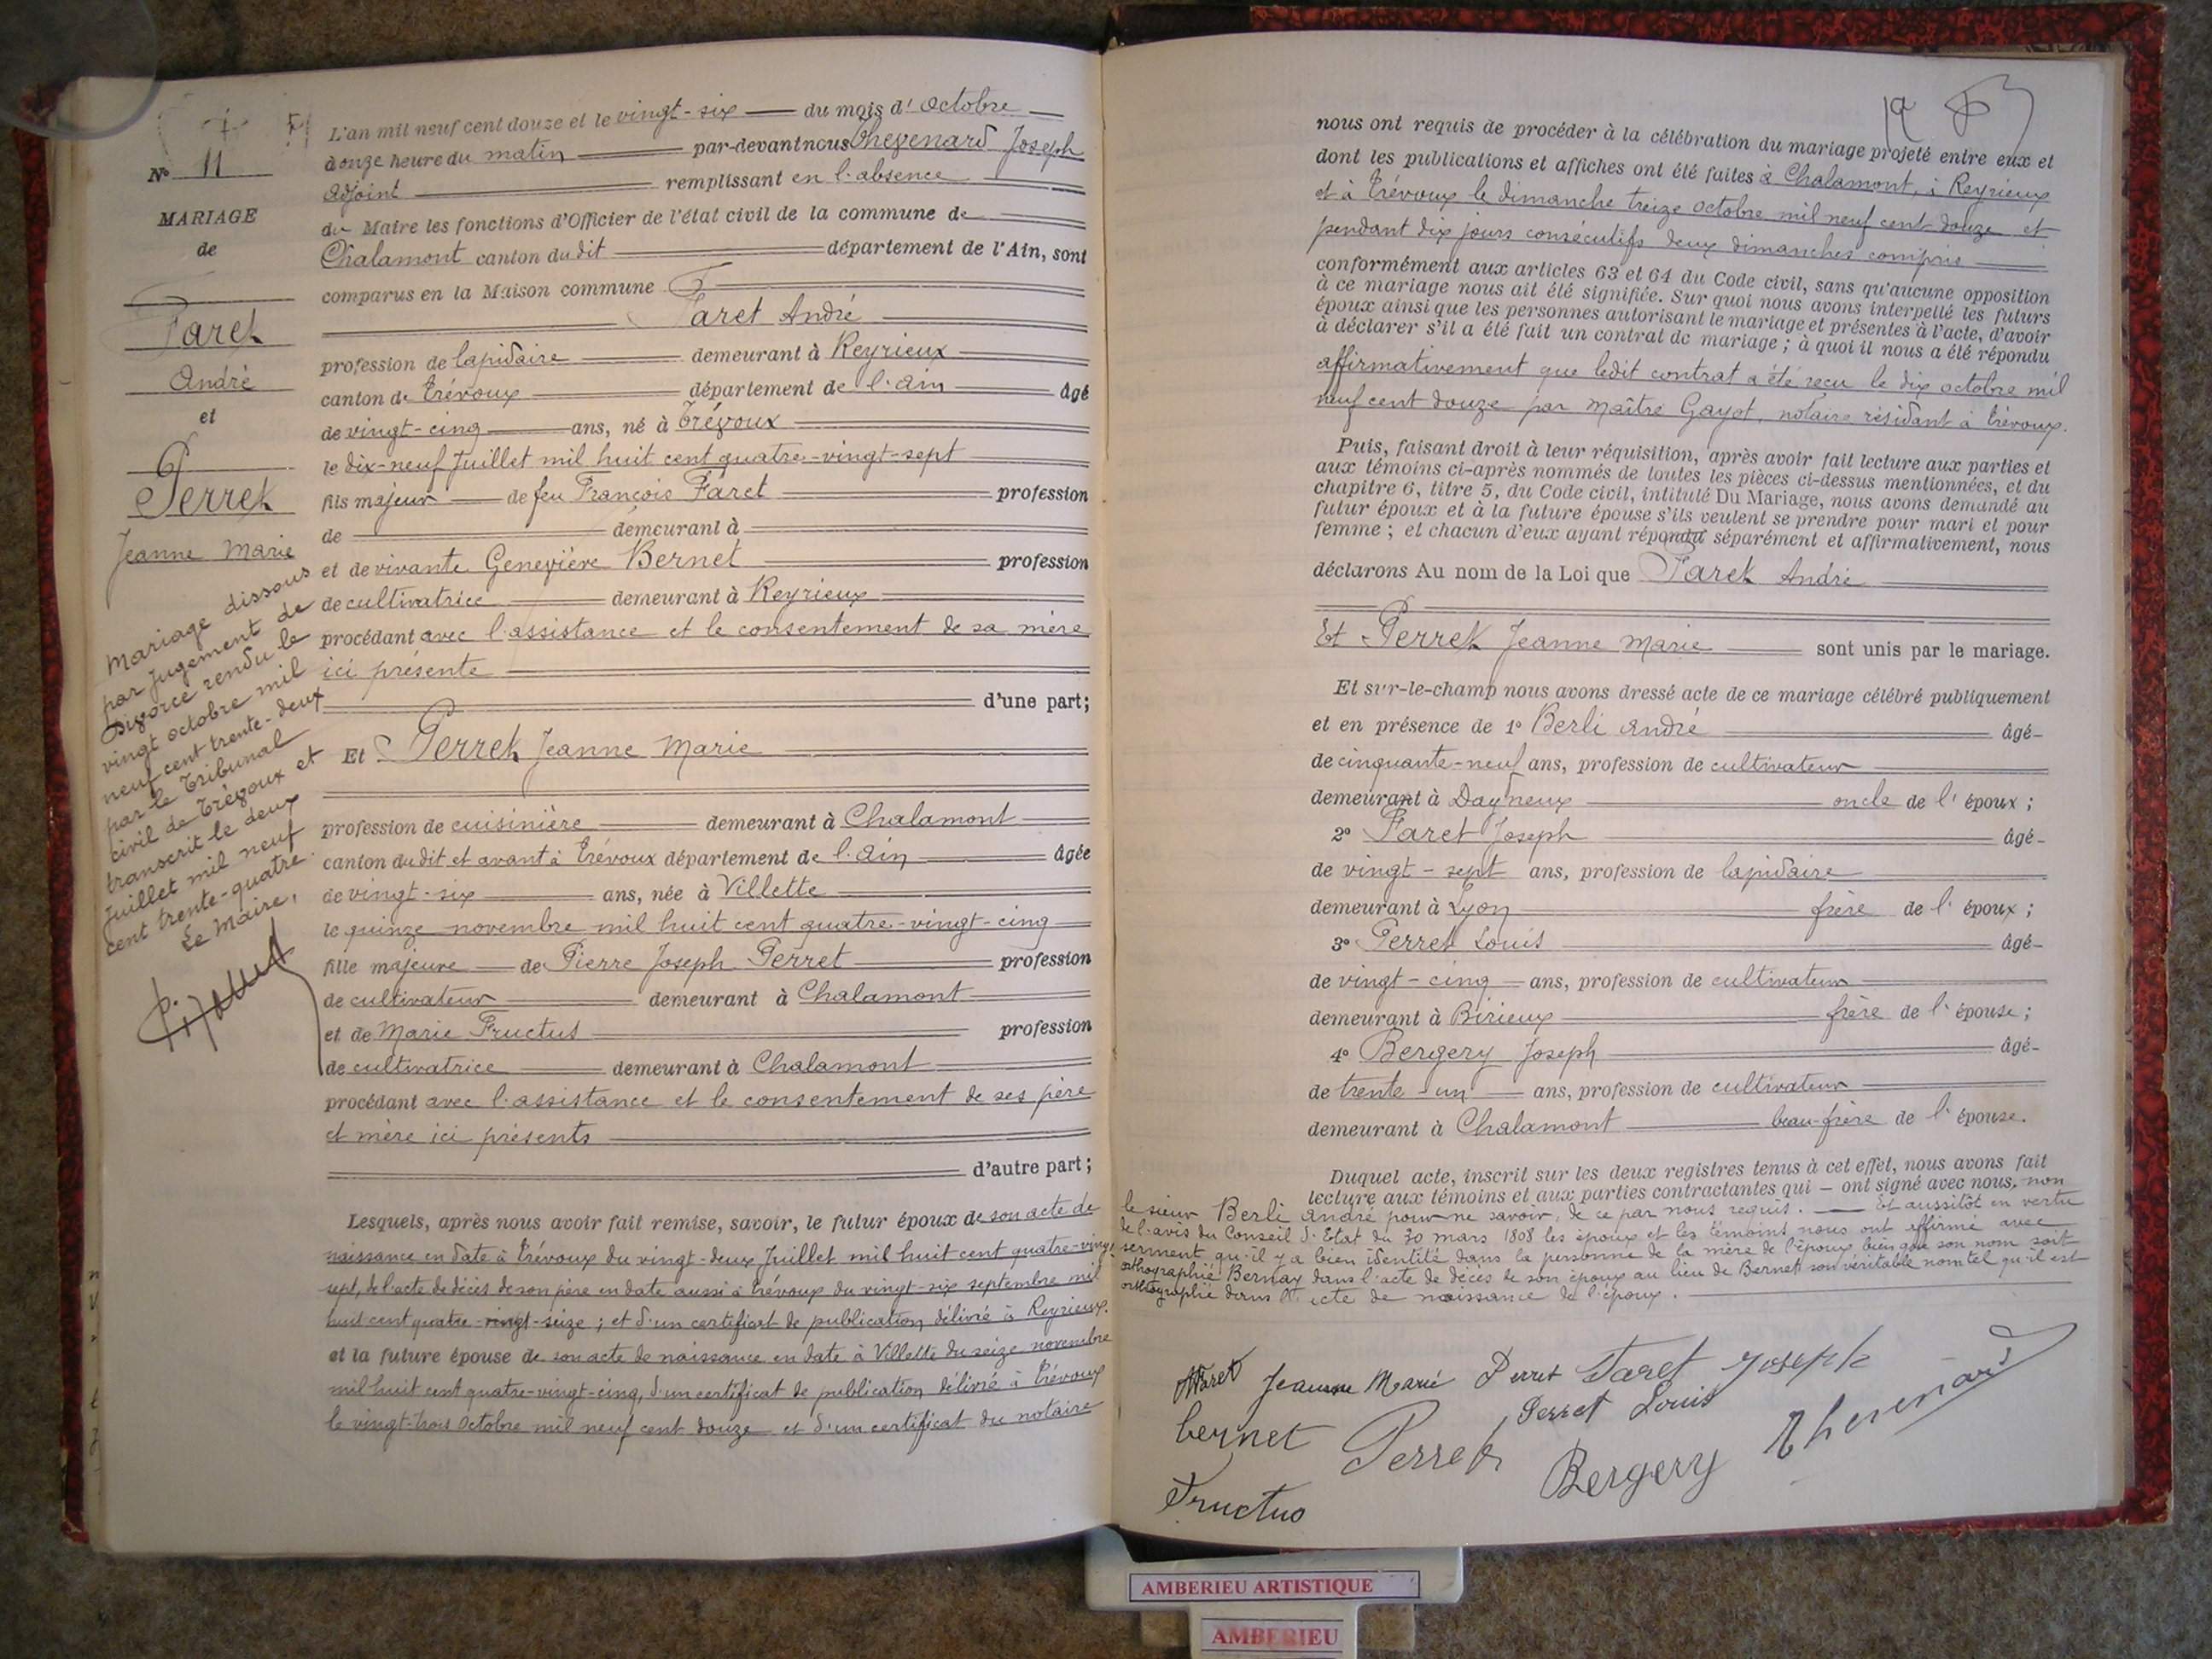 N° 11
MARIAGE
de
Faret
André
et
Perret
Jeanne Marie
Mariage dissous
par jugement de
Divorce rendu le
vingt octobre mil
neuf cent trente-deux
par le Tribunal
civil de Trévoux et
transcrit le deux
Juillet mil neuf
cent trente-quatre.
Le Maire,
L'an mil neuf cent douze et le vingt-six du mois d'Octobre
à onze heure du matin par-devant nous Thevenard Joseph
adjoint remplissant en l'absence
du Maire les fonctions d'Officier de l'état civil de la commune de
Chalamont canton dudit département de l'Ain, sont
comparus en la Maison commune
Faret André
profession de lapidaire demeurant à Reyrieux
canton de Trévoux département de l'Ain âgé
de vingt-cinq ans, né à Trévoux
le dix-neuf Juillet mil huit cent quatre-vingt-sept
fils majeur de feu François Faret profession
de demeurant à
et de vivante Geneviève Bernet profession
de cultivatrice demeurant à Reyrieux
procédant avec l'assistance et le consentement de sa mère
ici présente
d'une part;
Et Perret Jeanne Marie
profession de cuisinière demeurant à Chalamont
canton dudit et avant à Trévoux département de l'Ain âgée
de vingt-six ans, née à Villette
le quinze novembre mil huit cent quatre-vingt-cinq
fille majeure de Pierre Joseph Perret profession
de cultivateur demeurant à Chalamont
et de Marie Fructus profession
de cultivatrice demeurant à Chalamont
procédant avec l'assistance et le consentement de ses père
et mère ici présents
d'autre part;
Lesquels, après nous avoir fait remise, savoir, le futur époux de son acte de
naissance en date à Trévoux du vingt-deux Juillet mil huit cent quatre-vingt-
sept, de l'acte de décès de son père en date aussi à Trévoux du vingt-six septembre mil
huit cent quatre-vingt-seize; et d'un certificat de publication délivré à Reyrieux.
et la future épouse de son acte de naissance en date à Villette du seize novembre
mil huit cent quatre-vingt-cinq, d'un certificat de publication délivré à Trévoux
le vingt-trois Octobre mil neuf cent douze et d'un certificat du notaire
nous ont requis de procéder à la célébration du mariage projeté entre eux et
dont les publications et affiches ont été faites à Chalamont, à Reyrieux
et à Trévoux le dimanche treize octobre mil neuf cent douze et
pendant dix jours consécutifs deux dimanches compris
conformément aux articles 63 et 64 du Code civil, sans qu'aucune opposition
à ce mariage nous ait été signifiée. Sur quoi nous avons interpellé les futurs
époux ainsi que les personnes autorisant le mariage et présentes à l'acte, d'avoir
à déclarer s'il a été fait un contrat de mariage; à quoi il nous a été répondu
affirmativement que ledit contrat a été reçu le dix octobre mil
neuf cent douze par Maître Gayot, notaire résidant à Trévoux.
Puis, faisant droit à leur réquisition, après avoir fait lecture aux parties et
aux témoins ci-après nommés de toutes les pièces ci-dessus mentionnées, et du
chapitre 6, titre 5, du Code civil, intitulé Du Mariage, nous avons demandé au
futur époux et à la future épouse s'ils veulent se prendre pour mari et pour
femme; et chacun d'eux ayant répondu séparément et affirmativement, nous
déclarons Au nom de la Loi que Faret André
Et Perret Jeanne Marie sont unis par le mariage.
Et sur-le-champ nous avons dressé acte de ce mariage célébré publiquement
et en présence de 1° Berli André âgé
de cinquante-neuf ans, profession de cultivateur
demeurant à Dagneux oncle de l'époux;
2° Faret Joseph âgé
de vingt-sept ans, profession de lapidaire
demeurant à Lyon frère de l'époux;
3° Perret Louis âgé
de vingt-cinq ans, profession de cultivateur
demeurant à Birieux frère de l'épouse;
4° Bergery Joseph âgé
de trente-un ans, profession de cultivateur
demeurant à Chalamont beau-frère de l'épouse.
Duquel acte, inscrit sur les deux registres tenus à cet effet, nous avons fait
lecture aux témoins et aux parties contractantes qui ont signé avec nous, non
le sieur Berli André pour ne savoir, de ce par nous requis. Et aussitôt en vertu
de l'avis du Conseil d'Etat du 30 mars 1808 les époux et les témoins nous ont affirmé avec
serment qu'il y a bien identité dans la personne de la mère de l'époux bien que son nom soit
orthographié Bernay dans l'acte de décès de son époux au lieu de Bernet son véritable nom tel qu'il est
orthographié dans l'acte de naissance de l'époux.
Faret Jeanne Marie Perret Faret Joseph
Perret Louis
bernet Perret Bergery Thevenard
Fructus
AMBERIEU ARTISTIQUE
AMBERIEU